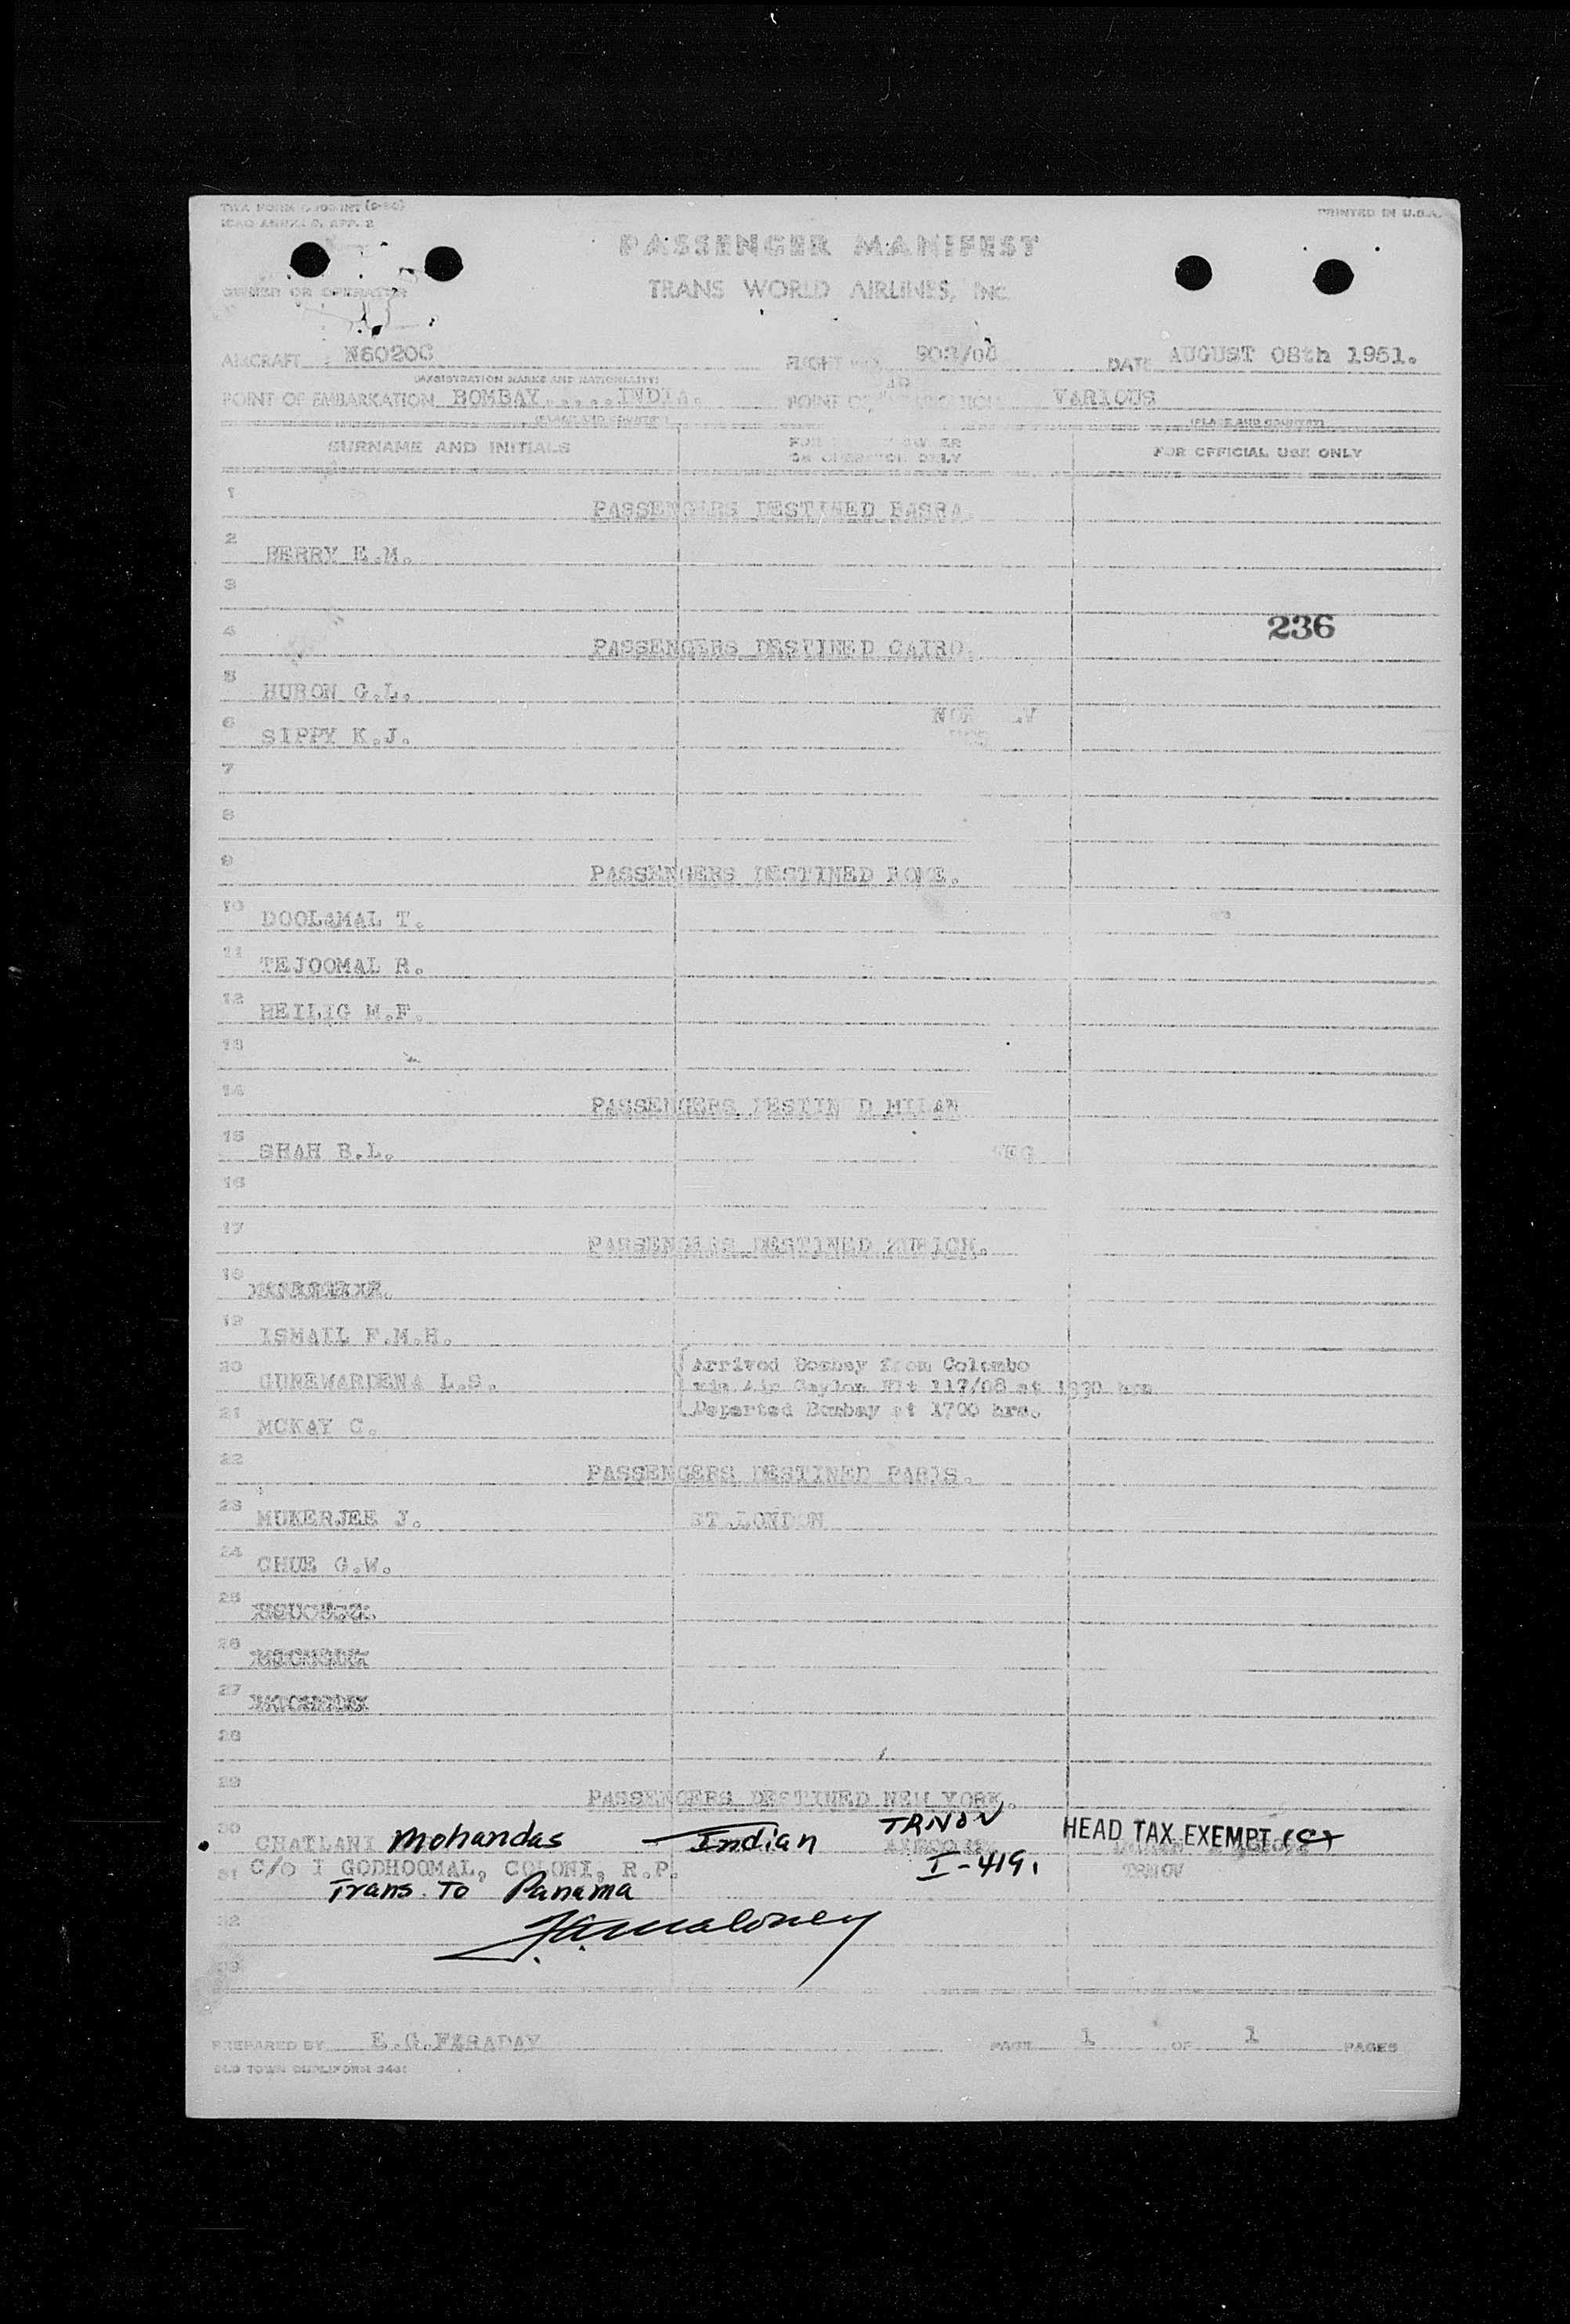 PRINTED IN U.S.A.
PASSENGER MANIFEST
TRANS WORLD AIRLINES, INC.
OWNED OR OPERATED
AIRCRAFT N6020C FLIGHT 903/08 DATE AUGUST 08th 1951.
(REGISTRATION MARKS AND NATIONALITY)
POINT OF EMBARKATION BOMBAY.....INDIA. POINT OF VARIOUS
(PLACE AND COUNTRY) (PLACE AND COUNTRY)
SURNAME AND INITIALS OR OPERATOR ONLY FOR OFFICIAL USE ONLY
1 PASSENGERS DESTINED BASRA.
2 BERRY E.M.
3
236
4 PASSENGERS DESTINED CAIRO.
5 HURON G.L.
6 SIPPY K.J.
7
8
9 PASSENGERS DESTINED ROME.
10 DOOLAMAL T.
11 TEJOOMAL R.
12 HEILIG M.F.
13
14 PASSENGERS DESTIN D MILAN
15 SHAH B.L.
16
17 PASSENGERS DESTINED ZURICH.
18
19 ISMAIL F.M.H.
20 GUNEWARDENA L.S. Arrived Bombay from Colombo
via Air Ceylon Flt 117/08 at 1330 hrs
21 MCKAY C. Departed Bombay at 1700 hrs.
22 PASSENGERS DESTINED PARIS.
23 MUKERJEE J. ST.LONDON
24 CHUE G.W.
25
26
27
28
29 PASSENGERS DESTINED NEW YORK.
30 CHATLANI Mohandas Indian TRNOV HEAD TAX EXEMPT (C)
31 C/o I GODHOOMAL, COLONI, R.P. I-419. TRNOV
Trans. To Panama
32 J.A. Maloney
33
PREPARED BY E.G.FARADAY PAGE 1 OF 1 PAGES
OLD TOWN DUPLIFORM